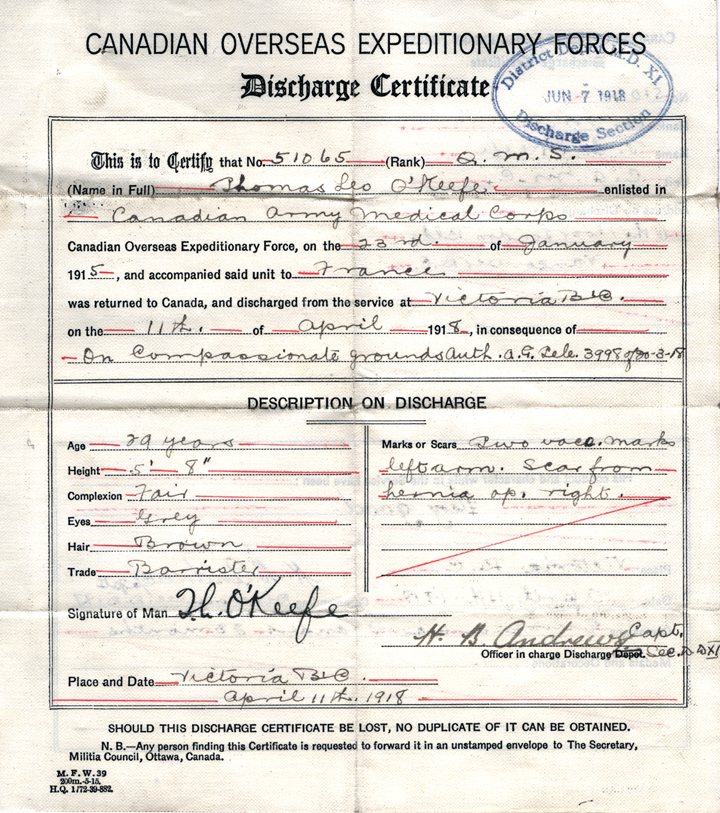 CANADIAN OVERSEAS EXPEDITIONARY FORCES
Discharge Certificate
District Depot M.D. XI
JUN - 7 1918
Discharge Section
This is to Certify that No. 51065 (Rank) Q. M. S.
(Name in Full) Thomas Leo O'Keefe enlisted in
Canadian Army Medical Corps
Canadian Overseas Expeditionary Force, on the 23rd. of January
1915, and accompanied said unit to France
was returned to Canada, and discharged from the service at Victoria B.C.
on the 11th. of April 1918, in consequence of
On Compassionate grounds Auth. A.G. Tele. 3998 of 20-3-18
DESCRIPTION ON DISCHARGE
Age 29 years
Height 5' 8"
Complexion Fair
Eyes Grey
Hair Brown
Trade Barrister
Marks or Scars Two vacc. marks
left arm. Scar from
hernia op. right.
Signature of Man T.L. O'Keefe
H. B. Andrews Capt.
Officer in charge Discharge Depot. Sec. D.D XI
Place and Date Victoria B.C.
April 11th. 1918
SHOULD THIS DISCHARGE CERTIFICATE BE LOST, NO DUPLICATE OF IT CAN BE OBTAINED.
N. B.—Any person finding this Certificate is requested to forward it in an unstamped envelope to The Secretary,
Militia Council, Ottawa, Canada.
M. F. W. 39
200m.-5-15.
H.Q. 1772-39-882.